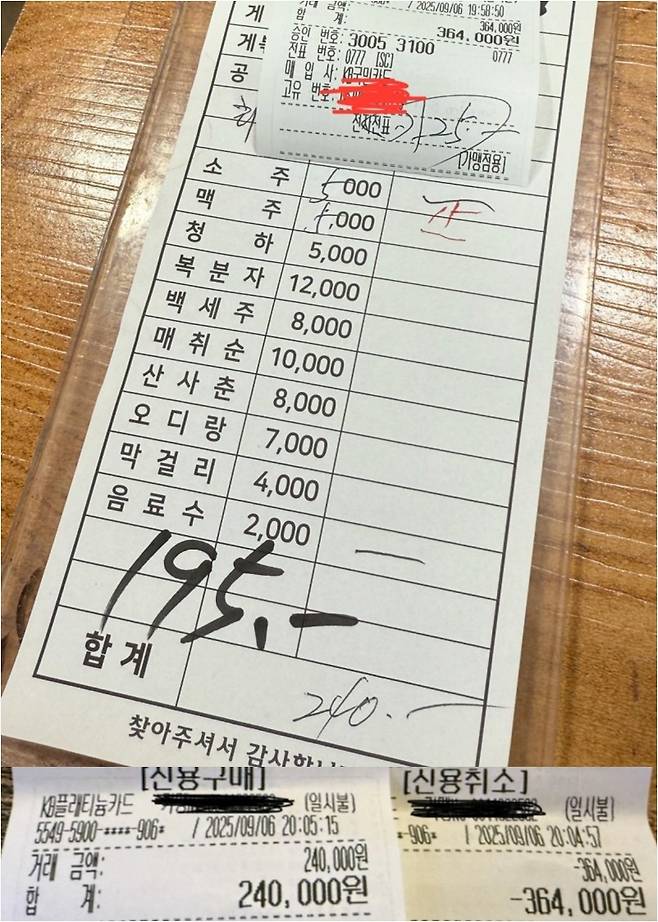 게
/ 2025/09/06 19:58:50
거래 금액: 364,000원
합 계: 364,000원
승인 번호: 3005 3100
전표 번호: 0777 [SC] 0777
매 입 사: KB국민카드
고유 번호:
전자전표
[가맹점용]
공
소 주 5,000 一
맥 주 5,000
청 하 5,000
복 분 자 12,000
백 세 주 8,000
매 취 순 10,000
산 사 춘 8,000
오 디 랑 7,000
막 걸 리 4,000
음 료 수 2,000 一
195.-
합 계
240.-
찾아주셔서 감사합니
[신용구매]
KB플래티늄카드 (일시불)
5549-5900-****-906* / 2025/09/06 20:05:15
거래 금액: 240,000원
합 계: 240,000원
[신용취소]
(일시불)
*-906* / 2025/09/06 20:04:57
-364,000원
-364,000원